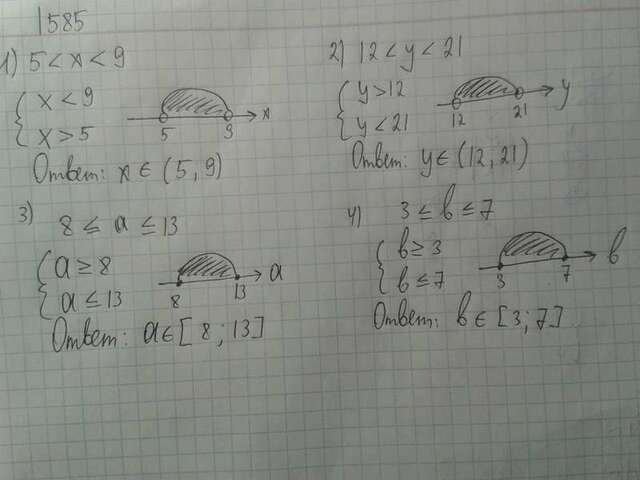 1585
1) 5 < x < 9
{ x < 9
{ x > 5
5 9 x
Ответ: x ∈ (5, 9)
2) 12 < y < 21
{ y > 12
{ y < 21
12 21 y
Ответ: y ∈ (12, 21)
3) 8 ≤ a ≤ 13
{ a ≥ 8
{ a ≤ 13
8 13 a
Ответ: a ∈ [8; 13]
4) 3 ≤ b ≤ 7
{ b ≥ 3
{ b ≤ 7
3 7 b
Ответ: b ∈ [3; 7]